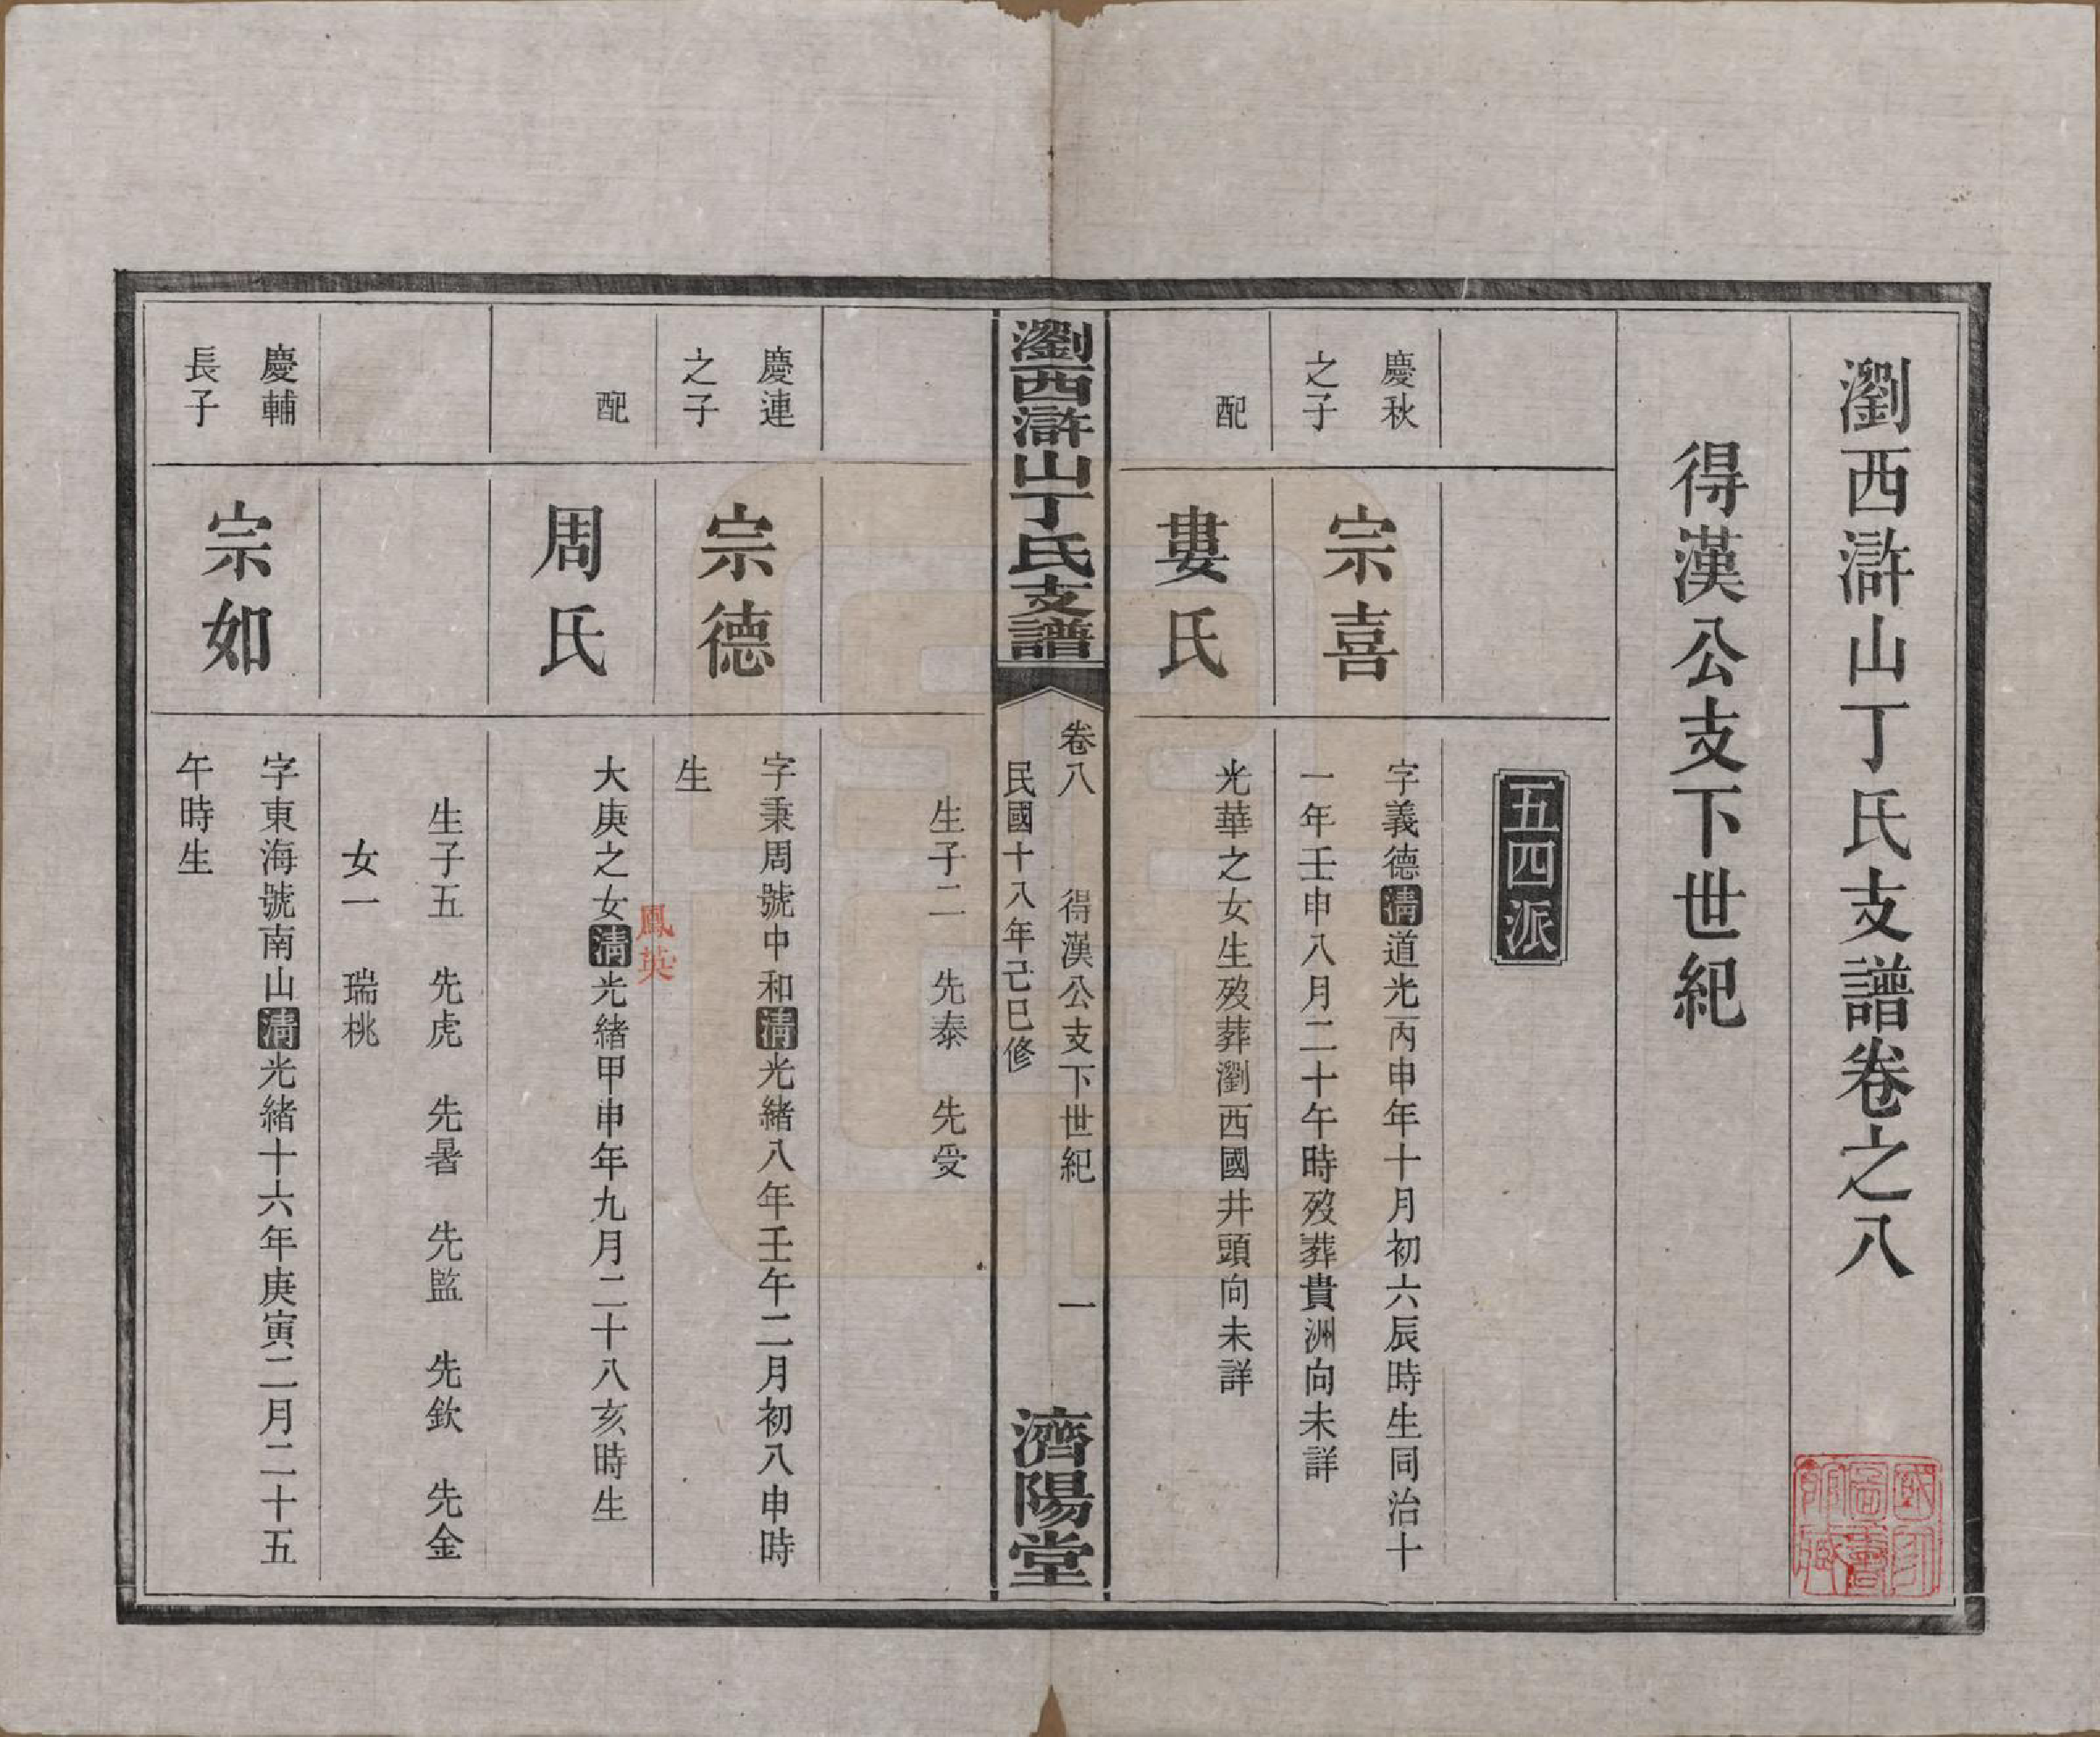 瀏西滸山丁氏支譜卷之八
得漢公支下世紀
五四派
慶秋
之子
宗喜
字義德清道光丙申年十月初六辰時生同治十
一年壬申八月二十午時歿葬貴洲向未詳
配
婁氏
光華之女生歿葬瀏西國井頭向未詳
瀏西滸山丁氏支譜
卷八 得漢公支下世紀 一
民國十八年己巳修
濟陽堂
生子二 先泰 先受
慶連
之子
宗德
字秉周號中和清光緒八年壬午二月初八申時
生
配
周氏
鳳英
大庚之女清光緒甲申年九月二十八亥時生
生子五 先虎 先暑 先監 先欽 先金
女一 瑞桃
慶輔
長子
宗如
字東海號南山清光緒十六年庚寅二月二十五
午時生